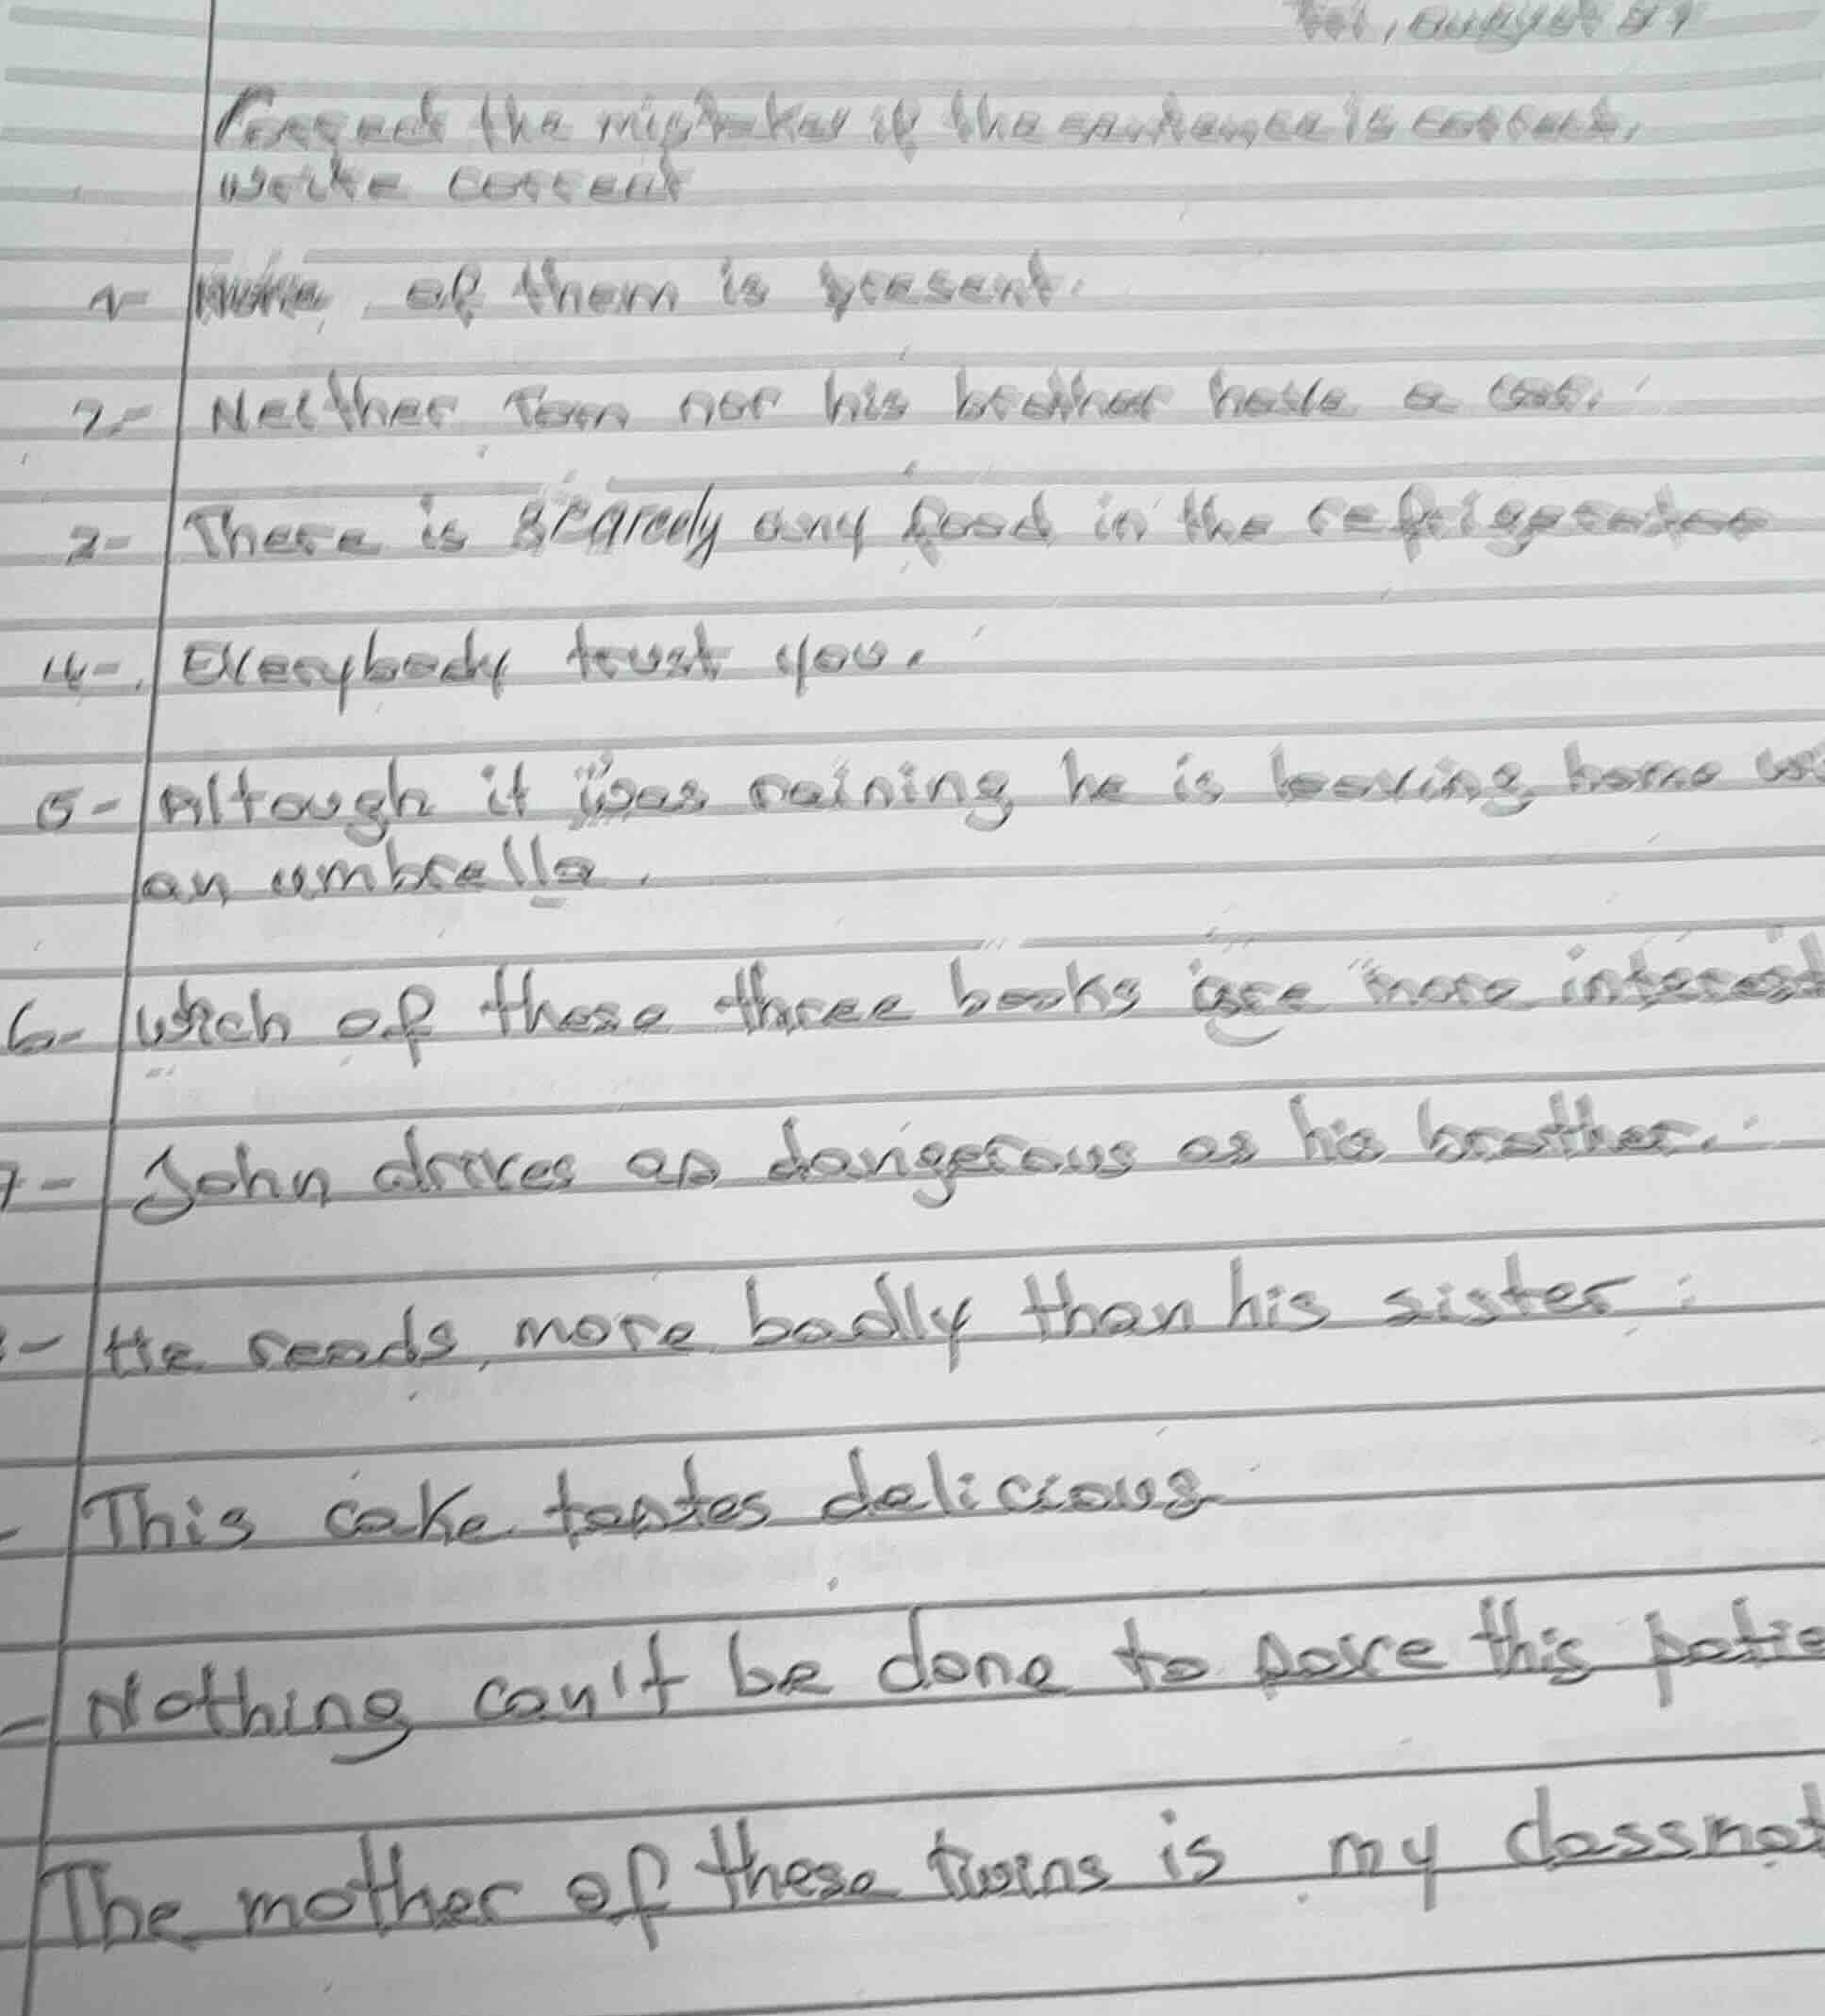 august 21
Correct the mistakes if the sentence is correct,
write correct
1- None of them is present.
2- Neither Tom nor his brother have a car.
3- There is scarcely any food in the refrigerator
4- Everybody trust you.
5- Altough it was raining he is leaving home
an umbrella.
6- Which of these three books are more interest
7- John drives as dangerous as his brother.
- He reads more badly than his sister.
- This cake tastes delicious
- Nothing can't be done to save this patie
The mother of these twins is my classmat